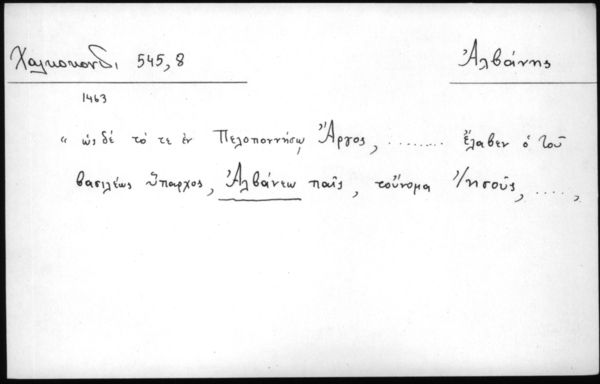 Χαλκοκονδ. 545,8 Ἀλβάνης
1463
« ὡς δέ τό τε ἐν Πελοποννήσῳ Ἄργος, ........ ἔλαβεν ὁ τοῦ
βασιλέως ὕπαρχος, Ἀλβάνεω παῖς, τοὔνομα Ἰησοῦς, .....,